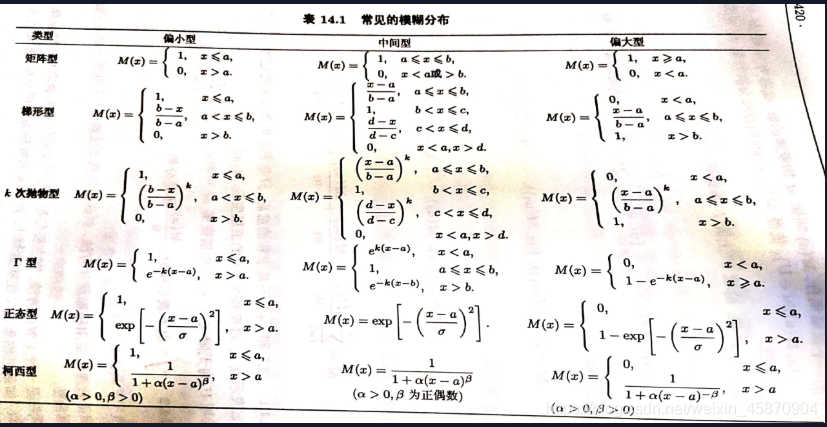 表 14.1 常见的模糊分布
420 ·
类型 偏小型 中间型 偏大型
矩阵型 M(x) = { 1, x ⩽ a, 0, x > a. M(x) = { 1, a ⩽ x ⩽ b, 0, x < a或 > b. M(x) = { 1, x ⩾ a, 0, x < a.
梯形型 M(x) = { 1, x ⩽ a, (b−x)/(b−a), a < x ⩽ b, 0, x > b. M(x) = { (x−a)/(b−a), a ⩽ x ⩽ b, 1, b < x ⩽ c, (d−x)/(d−c), c < x ⩽ d, 0, x < a, x > d. M(x) = { 0, x < a, (x−a)/(b−a), a ⩽ x ⩽ b, 1, x > b.
k 次抛物型 M(x) = { 1, x ⩽ a, ((b−x)/(b−a))^k, a < x ⩽ b, 0, x > b. M(x) = { ((x−a)/(b−a))^k, a ⩽ x ⩽ b, 1, b < x ⩽ c, ((d−x)/(d−c))^k, c < x ⩽ d, 0, x < a, x > d. M(x) = { 0, x < a, ((x−a)/(b−a))^k, a ⩽ x ⩽ b, 1, x > b.
Γ 型 M(x) = { 1, x ⩽ a, e^{−k(x−a)}, x > a. M(x) = { e^{k(x−a)}, x < a, 1, a ⩽ x ⩽ b, e^{−k(x−b)}, x > b. M(x) = { 0, x < a, 1 − e^{−k(x−a)}, x ⩾ a.
正态型 M(x) = { 1, x ⩽ a, exp[−((x−a)/σ)^2], x > a. M(x) = exp[−((x−a)/σ)^2]. M(x) = { 0, x ⩽ a, 1 − exp[−((x−a)/σ)^2], x > a.
柯西型 M(x) = { 1, x ⩽ a, 1/(1+α(x−a)^β), x > a M(x) = 1/(1+α(x−a)^β) M(x) = { 0, x ⩽ a, 1/(1+α(x−a)^{−β}), x > a
(α > 0, β > 0) (α > 0, β 为正偶数) (α > 0, β > 0)
csdn.net/weixin_45870904